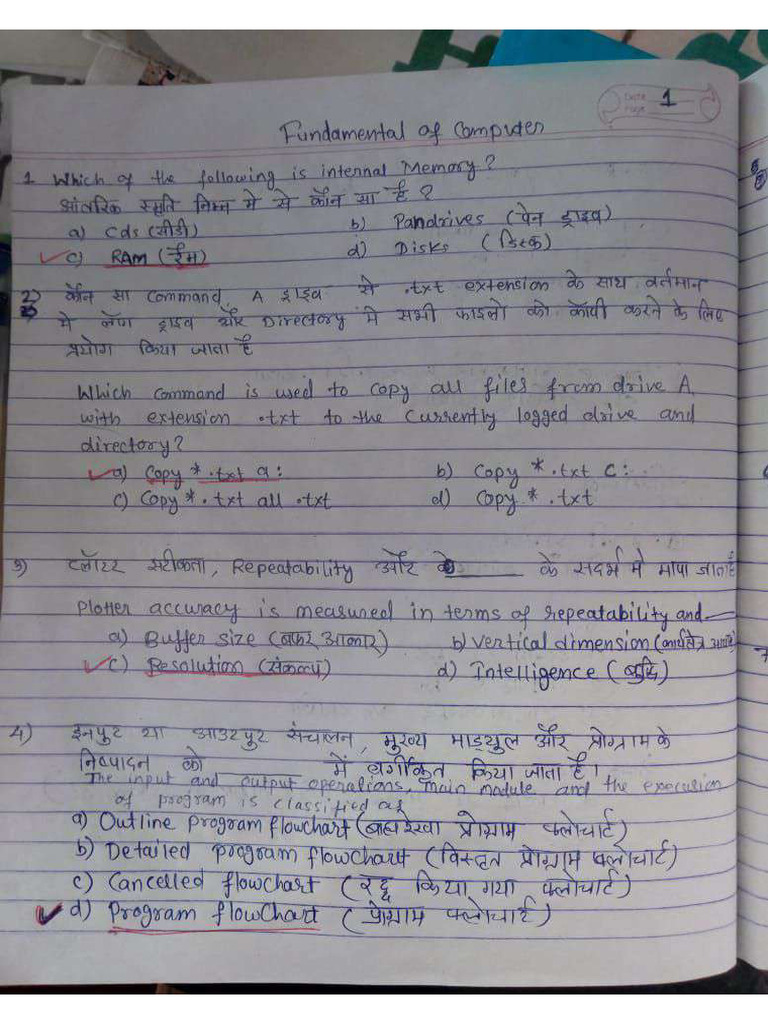 Date
Page
1
Fundamental of Computer
1 Which of the following is internal Memory?
आंतरिक स्मृति निम्न मे से कौन सा है ?
a) Cds (सीडी) b) Pandrives (पेन ड्राइव)
c) RAM (रैम) d) Disks (डिस्क)
2) कौन सा Command, A ड्राइव से .txt extension के साथ वर्तमान
मे लॉग ड्राइव और Directory मे सभी फाइलो को कॉपी करने के लिए
प्रयोग किया जाता है
Which Command is used to copy all files from drive A
with extension .txt to the Currently logged drive and
directory?
a) Copy *.txt a: b) Copy *.txt C:
c) Copy *.txt all .txt d) Copy *.txt
3) प्लॉटर सटीकता, Repeatability और ______ के सदर्भ मे मापा जाता है
Plotter accuracy is measured in terms of repeatability and —
a) Buffer size (बफर आकार) b) Vertical dimension (
c) Resolution (संकल्प) d) Intelligence (बुद्धि)
4) इनपुट या आउटपुट संचालन, मुख्य माड्युल और प्रोग्राम के
निष्पादन को ______ में वर्गीकृत किया जाता है।
The input and output operations, main module and the execusion
of program is classified as
a) Outline program flowchart (बाह्यरेखा प्रोग्राम फ्लोचार्ट)
b) Detailed program flowchart (विस्तृत प्रोग्राम फ्लोचार्ट)
c) Cancelled flowchart (रद्द किया गया फ्लोचार्ट)
d) Program flowChart (प्रोग्राम फ्लोचार्ट)